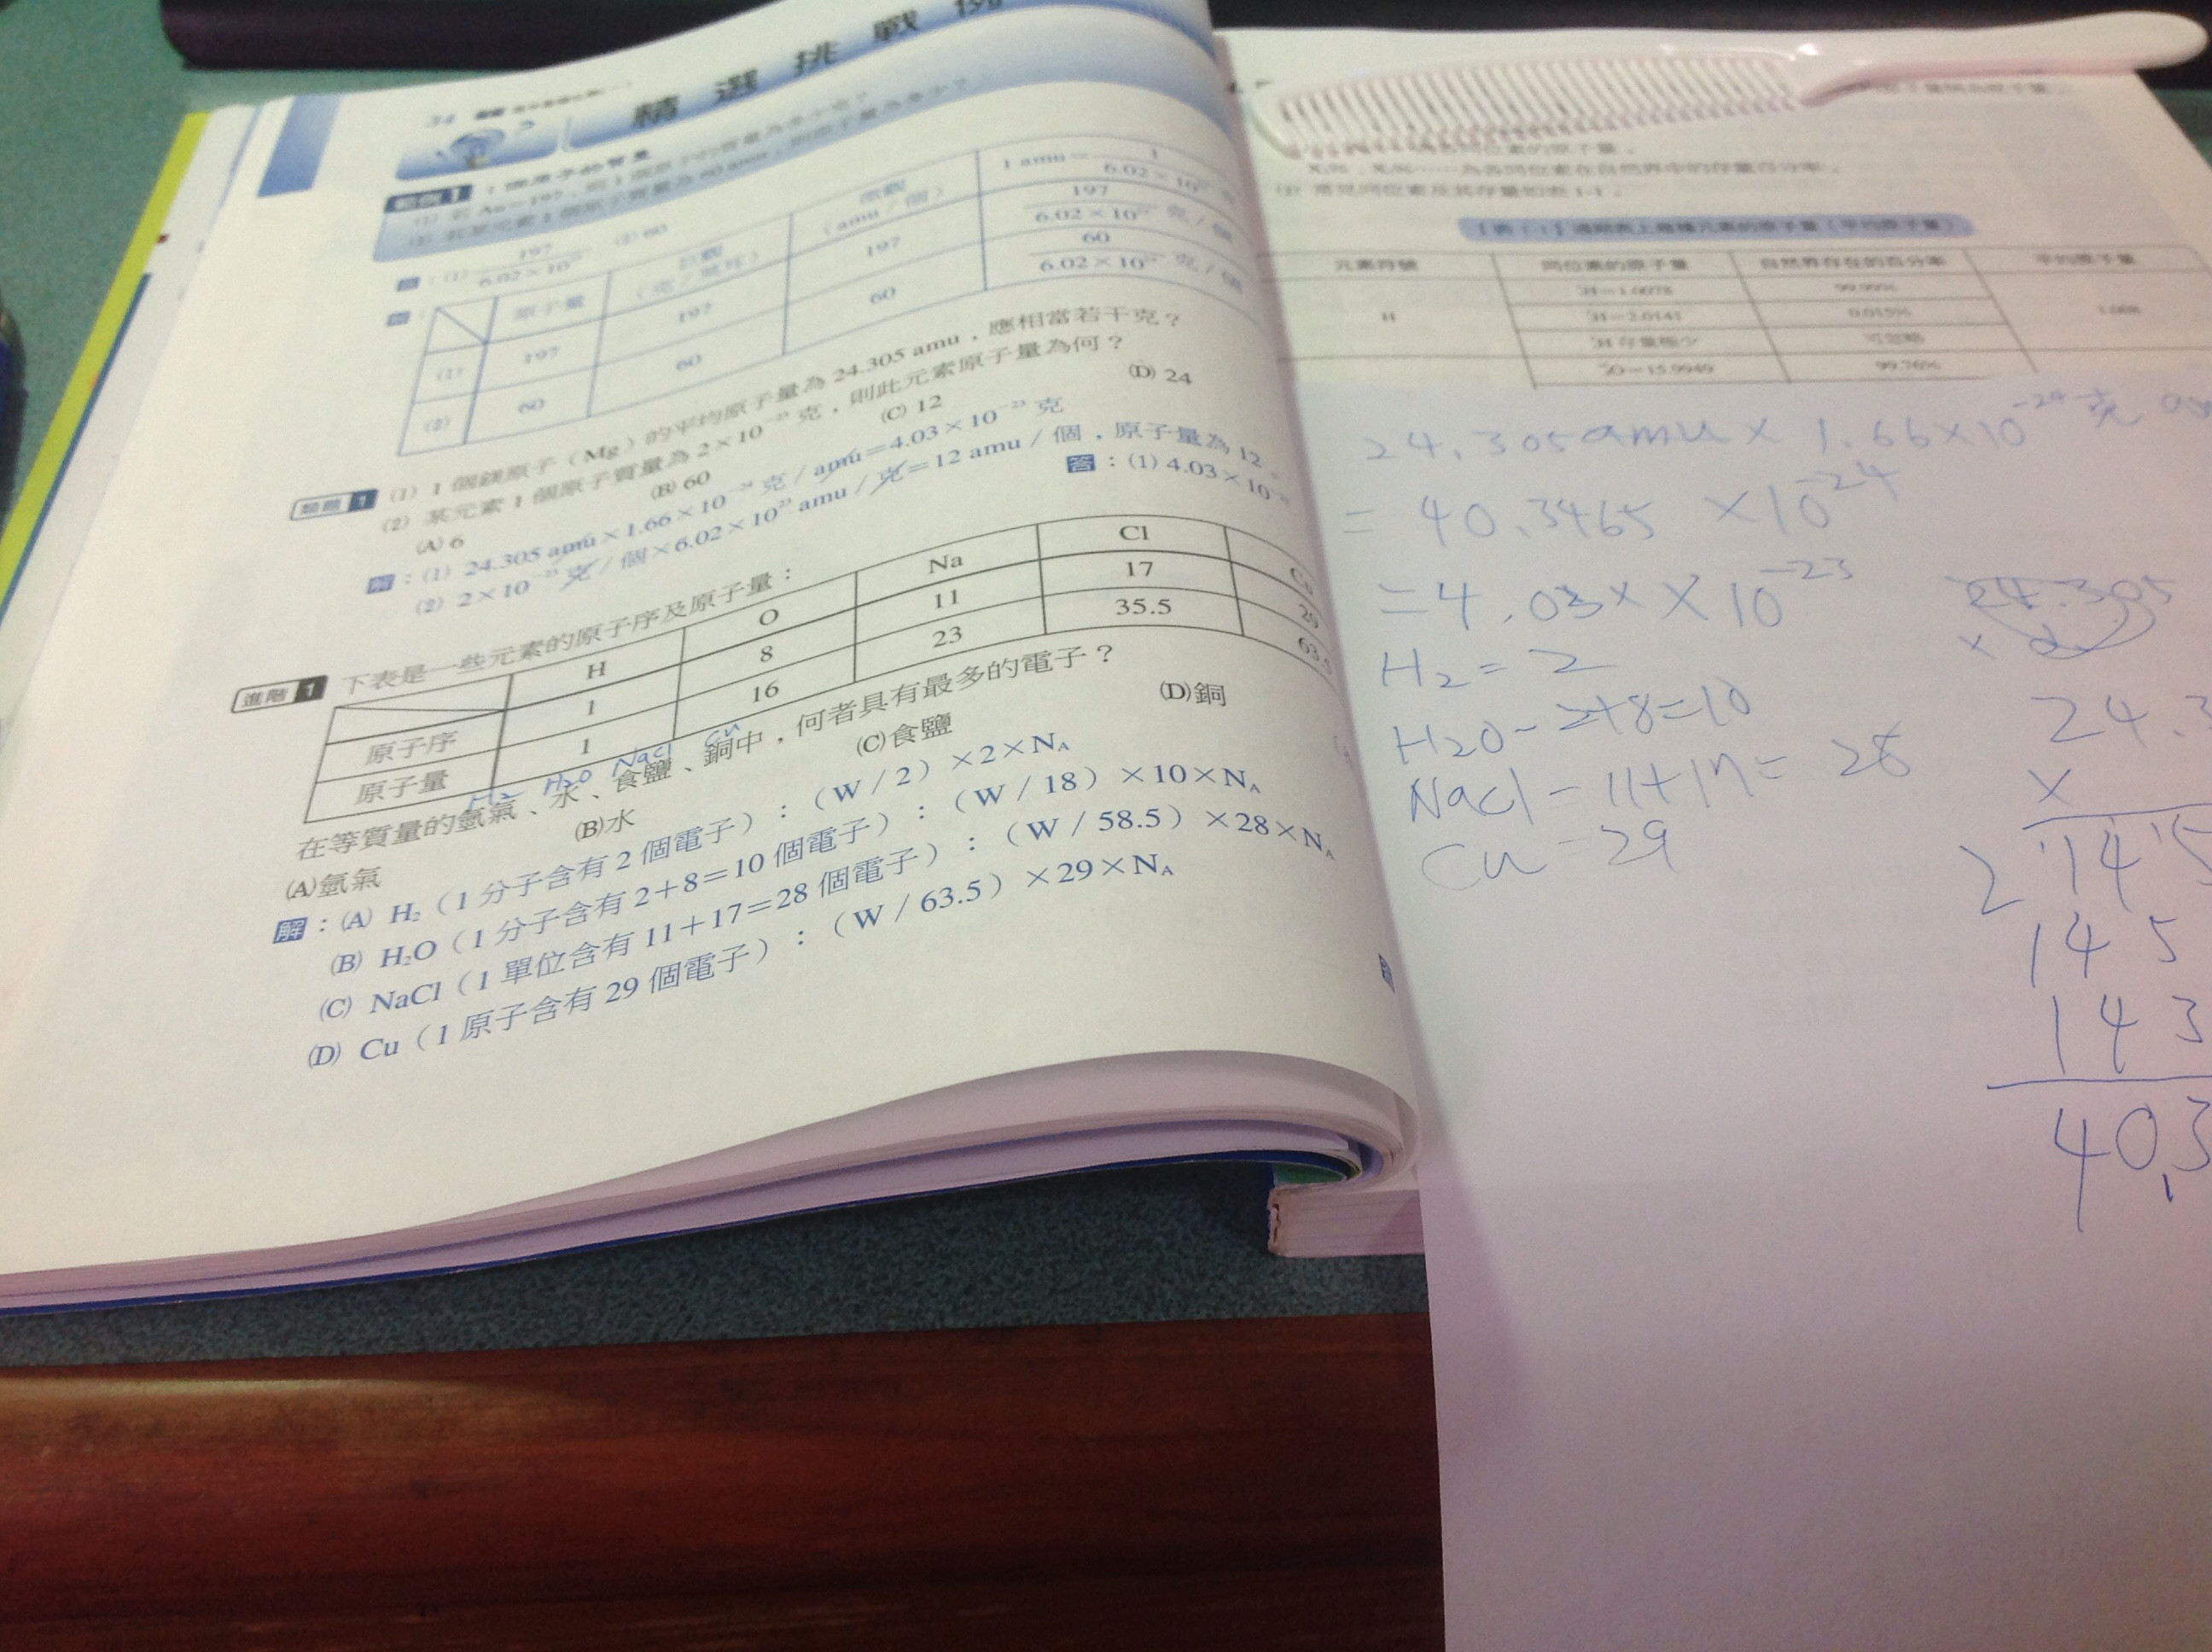 34
精選挑戰例
範例 1：1個原子的質量
(1) 若 Au＝197，則 1 個原子的質量為多少克？
(2) 若某元素 1 個原子質量為 60 amu，則原子量為多少？
(1) 197 / 6.02×10 (2) 60
原子量 巨觀（克／莫耳） 微觀（amu／個） 1 amu＝1 / 6.02×10
(1) 197 197 197 197 / 6.02×10 克／個
(2) 60 60 60 60 / 6.02×10 克／個
類題 1 (1) 1 個鎂原子（Mg）的平均原子量為 24.305 amu，應相當若干克？
(2) 某元素 1 個原子質量為 2×10⁻²³ 克，則此元素原子量為何？
(A) 6 (B) 60 (C) 12 (D) 24
解：(1) 24.305 amu×1.66×10⁻²⁴ 克／amu＝4.03×10⁻²³ 克
(2) 2×10⁻²³ 克／個×6.02×10²³ amu／克＝12 amu／個，原子量為 12。
答：(1) 4.03×10
進階 1 下表是一些元素的原子序及原子量：
H O Na Cl Cu
原子序 1 8 11 17 29
原子量 1 16 23 35.5 63.5
H₂ H₂O NaCl Cu
在等質量的氫氣、水、食鹽、銅中，何者具有最多的電子？
(A)氫氣 (B)水 (C)食鹽 (D)銅
解：(A) H₂（1 分子含有 2 個電子）：（W／2）×2×N_A
(B) H₂O（1 分子含有 2+8＝10 個電子）：（W／18）×10×N_A
(C) NaCl（1 單位含有 11+17＝28 個電子）：（W／58.5）×28×N_A
(D) Cu（1 原子含有 29 個電子）：（W／63.5）×29×N_A
……為各同位素在自然界中的存量百分率。
(3) 常見同位素及其存量如表 1-1。
【表 1-1】週期表上幾種元素的原子量（平均原子量）
元素符號 同位素的原子量 自然界存在的百分率 平均原子量
H ¹H＝1.0078 99.99% 1.008
²H＝2.0141 0.015%
³H 存量極少 可忽略
O＝15.9949 99.76%
24.305amu × 1.66×10⁻²⁴ 克
= 40.3465 ×10⁻²⁴
=4.03× ×10⁻²³
H₂ = 2
H₂O - 2+8=10
NaCl - 11+17= 28
Cu - 29
24.305
× 2
24.3
×
2 14 5
14 5
14 3
40.3